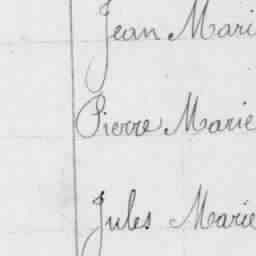 Jean Mari
Pierre Marie
Jules Marie